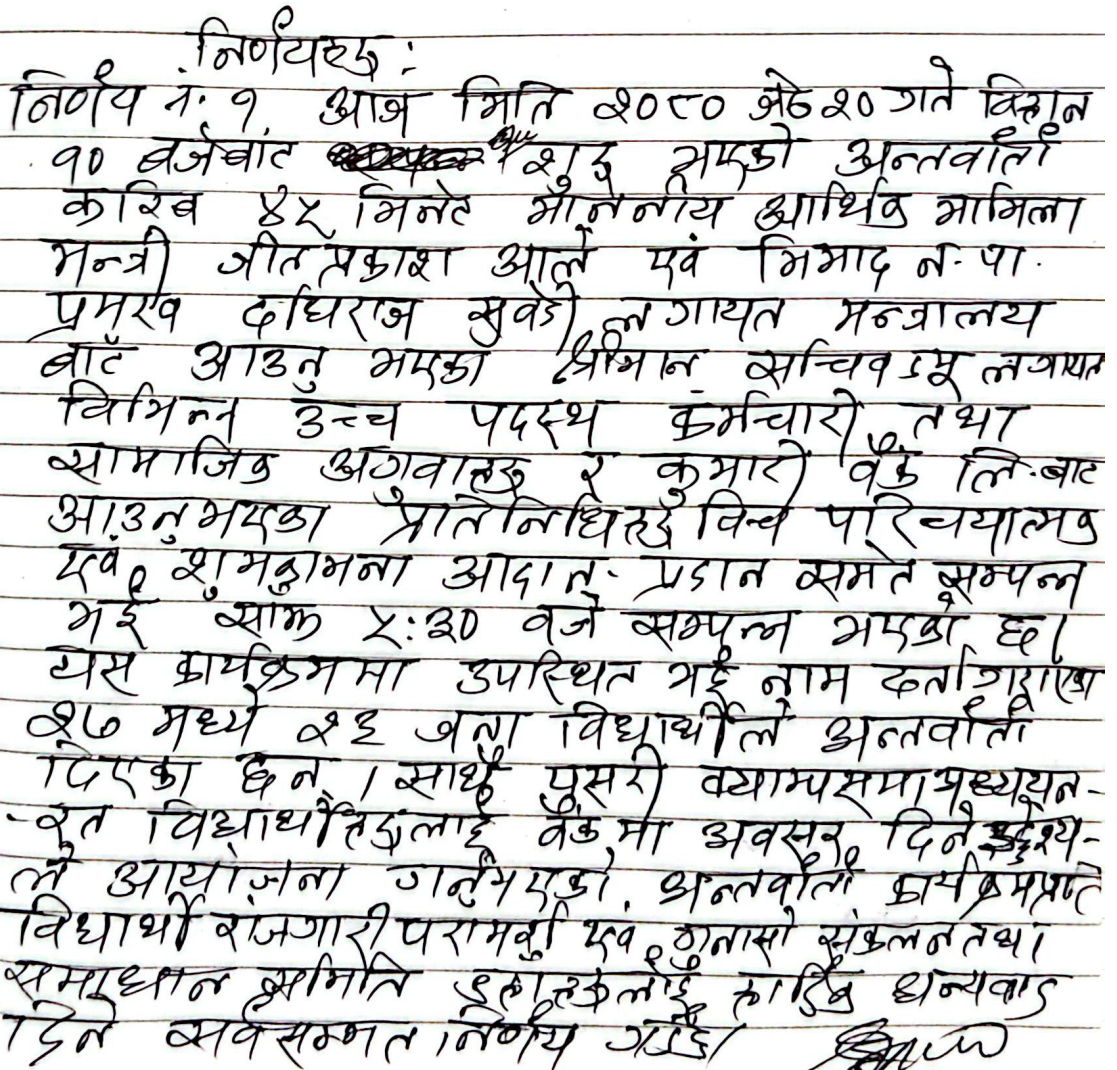 निर्णयहरु:
निर्णय नं. १ आज मिति २०८० जेठ २० गते विहान
१० बजेबाट शुरु भएको अन्तर्वार्ता
करिब ४५ मिनेट माननीय आर्थिक मामिला
मन्त्री जीत प्रकाश आले एवं भिमाद न. पा.
प्रमुख दधिराज सुवेदी लगायत मन्त्रालय
बाट आउनु भएका श्रीमान सचिवज्यू लगायत
विभिन्न उच्च पदस्थ कर्मचारी तथा
सामाजिक अगुवाहरु र कुमारी बैंक लि. बाट
आउनुभएका प्रतिनिधिहरु विच परिचयात्मक
एवं शुभकामना आदान-प्रदान समेत सम्पन्न
भई साँझ ५:३० बजे सम्पन्न भएको छ।
यस कार्यक्रममा उपस्थित भई नाम दर्ता गराएका
२७ मध्ये २६ जना विद्यार्थीले अन्तर्वार्ता
दिएका छन् । साथै यसरी क्याम्पसमा अध्ययन-
-रत विद्यार्थीहरुलाई बैंकमा अवसर दिने उद्देश्य-
ले आयोजना गर्नुभएको अन्तर्वार्ता कार्यक्रमप्रति
विद्यार्थी रोजगारी परामर्श एवं गुनासो संकलन तथा
समाधान समिति हार्दिक धन्यवाद
दिने सर्वसम्मत निर्णय गर्दछ।